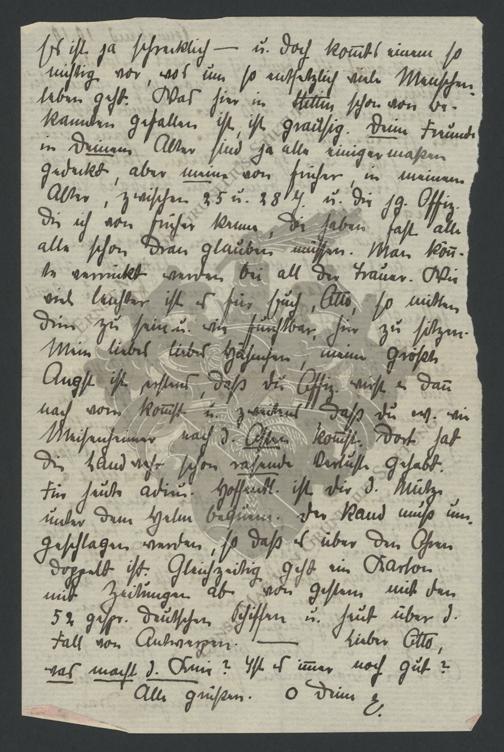 Es ist ja schrecklich — u. doch kommts einem so
nichtig vor, wos um so entsetzlich viele Menschen-
leben geht. Was hier in Stettin schon von Be-
kannten gefallen ist, ist grausig. Deine Freunde
in Deinem Alter sind ja alle einigermaßen
gedeckt, aber meine von früher, in meinem
Alter, zwischen 25 u. 28 J. u. die jg. Offiz.
die ich von früher kenne, die haben fast alle
alle schon dran glauben müssen. Man könn-
te verrückt werden bei all der Trauer. Wie
viel leichter ist es für Euch, Otto, so mitten
drin zu sein u. wie furchtbar, hier zu sitzen.
Mein liebes liebes, meine größte
Angst ist erstens, daß Du Offiz. wirst u. dann
nach vorn kommst u. zweitens daß Du ev. wie
Meisenheimer nach d. Osten kommst. Dort hat
die Landwehr schon rasende Verluste gehabt.
Für heute adieu. Hoffentl. ist Dir d. Mütze
unter dem Helm bequem. Der Rand muß um-
geschlagen werden, so daß es über den Ohren
doppelt ist. Gleichzeitig geht ein Karton
mit Zeitungen ab von gestern mit den
52 deutschen Schiffen u. heut über d.
Fall von Antwerpen. — Lieber Otto,
was macht d. Knie? Ist es immer noch gut?
Alle grüßen. O Deine E.